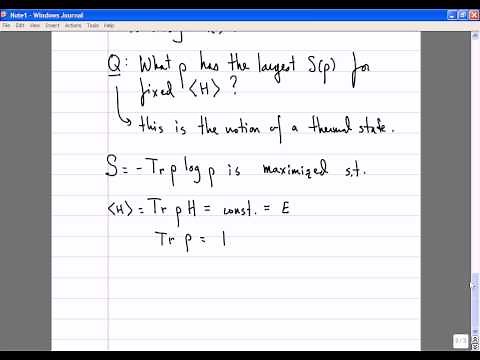 Note1 - Windows Journal
File Edit View Insert Actions Tools Help
Q: What ρ has the largest S(ρ) for
fixed ⟨H⟩ ?
this is the notion of a thermal state.
S = - Tr ρ log ρ is maximized s.t.
⟨H⟩ = Tr ρ H = const. = E
Tr ρ = 1